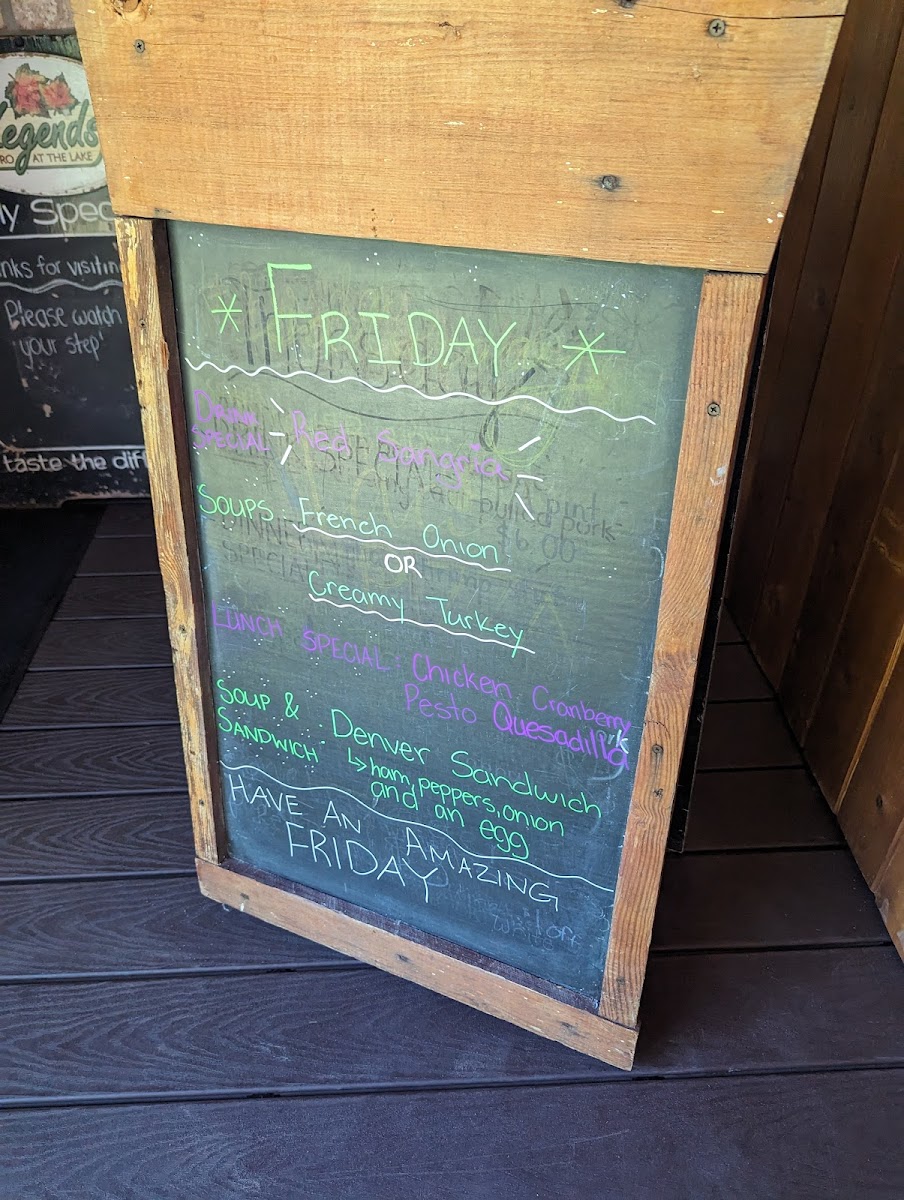 Legends
RO AT THE LAKE
ly Spec
nks for visitin
Please watch
your step
taste the diff
* FRIDAY *
DRINK
SPECIAL Red Sangria
SOUPS French Onion
OR
Creamy Turkey
LUNCH SPECIAL: Chicken Cranberry
Pesto Quesadilla
SOUP & Denver Sandwich
SANDWICH ↳ ham, peppers, onion
and an egg
HAVE AN AMAZING
FRIDAY